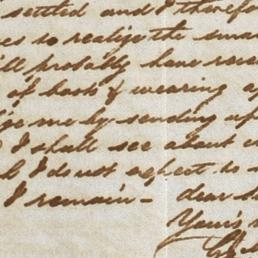 settled and I therefore
to realize the sma
ill probably have rece
of books & wearing a
me by sending up
I shall see about
I do not expect to
I remain - dear S
Yours